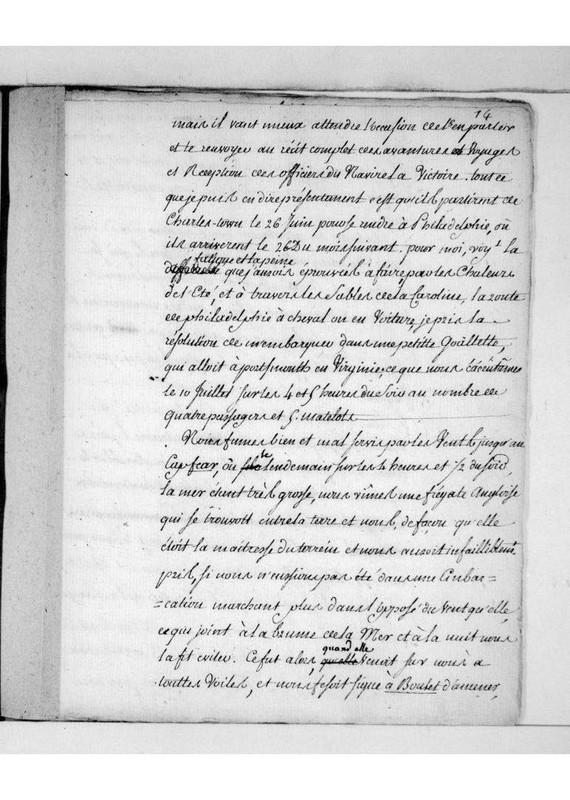 14
mais il vaut mieux attendre l'occasion de t'en parler
et te renvoyer au récit complet des avantures et Voyages
et Reception des officiers du Navire La Victoire. tout ce
que je puis en dire présentement c'est qu'ils partirent de
Charles-town le 26 Juin pour se rendre à Philadelphie, où
ils arriverent le 26 Du mois suivant. pour moi, voyt. la
fatigue et la peine
que j'aurois éprouvée à faire par les Chaleurs
de l'Eté, et à travers les Sables de la Caroline, la route
de philadelphie à cheval ou en Voiture, je pris la
résolution de m'embarquer dans une petitte Goëllette,
qui alloit à portsmouth en Virginie, ce que nous éxécutâmes
le 10 Juillet sur les 4 et 5 heures du Soir au nombre de
quatre passagers et 5. matelots
Nous fumes bien et mal servis par les Vents jusqu'au
Cap fear, où le lendemain sur les 4 heures et 1/2 du soir,
la mer étant très grosse, nous vîmes une frégate Angloise
qui se trouvoit entre la terre et nous, de façon qu'elle
étoit la maitresse du terrein et nous auroit infailliblemt.
pris, si nous n'eussions pas été dans une Embar=
=cation marchant plus dans l'opposé du Vent qu'elle,
ce qui joint à la brume de la Mer et à la nuit nous
la fit eviter. Ce fut alors, quand elle venoit sur nous à
touttes Voiles, et nous fesoit signe à Boulet d'amener,